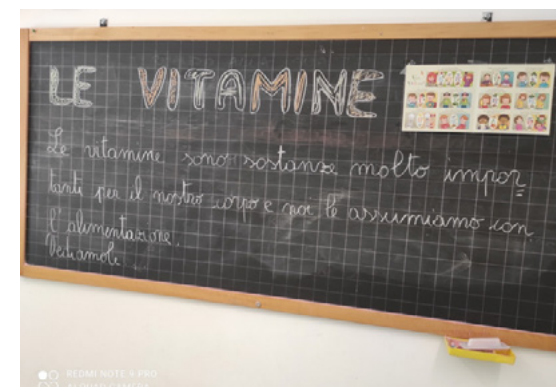 LE VITAMINE
Le vitamine sono sostanze molto impor
tanti per il nostro corpo e noi le assumiamo con
l'alimentazione.
Vediamole
REDMI NOTE
PRO
CAMERA